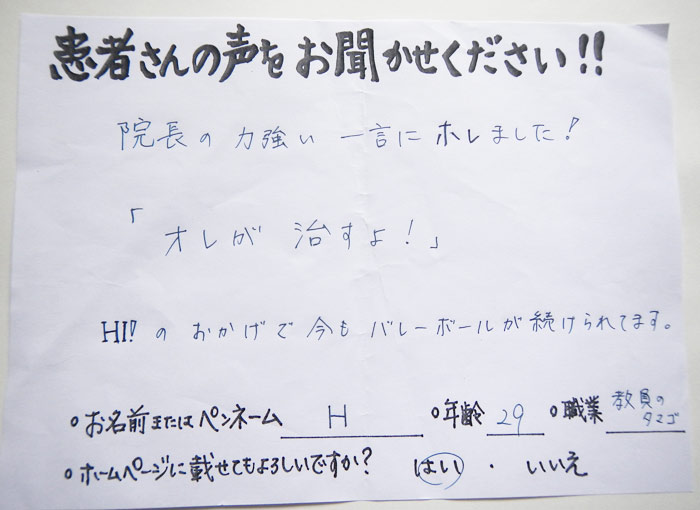 患者さんの声をお聞かせください!!
院長の力強い一言にホレました!
「オレが治すよ!」
HI!のおかげで今もバレーボールが続けられてます。
○お名前またはペンネーム H ○年齢 29 ○職業 教員のタマゴ
○ホームページに載せてもよろしいですか? はい・いいえ